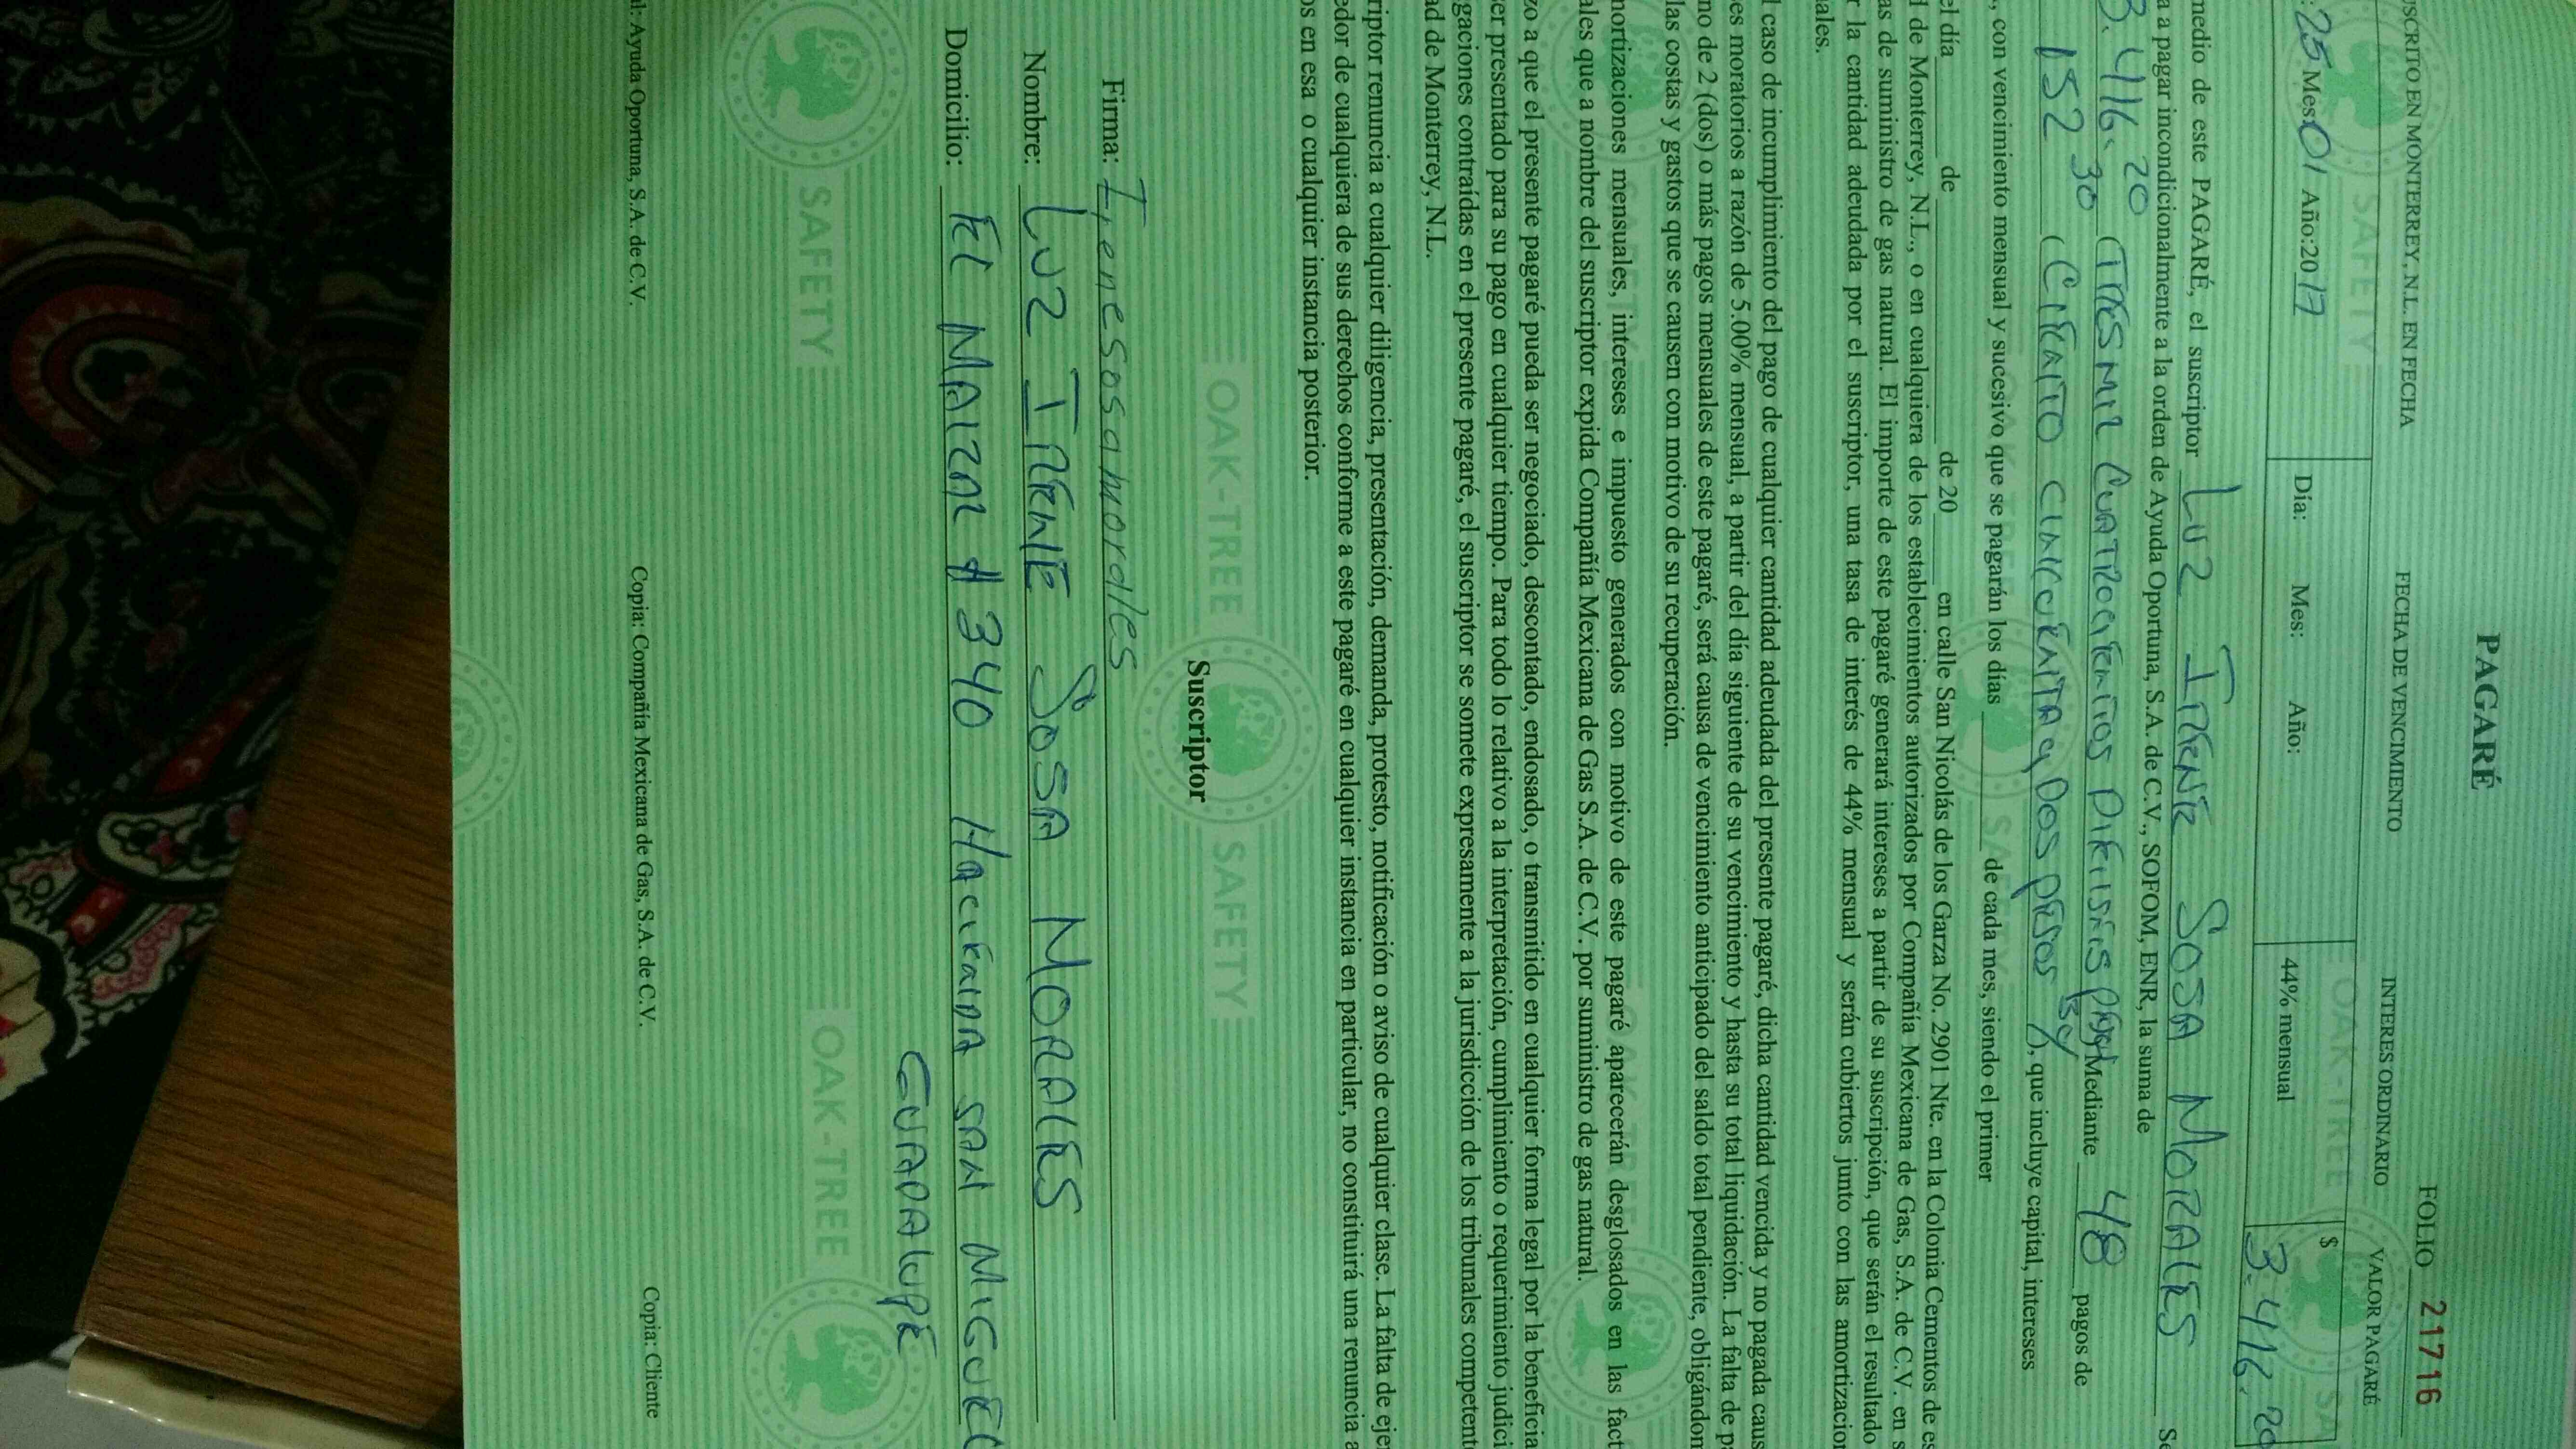 PAGARÉ
FOLIO 21716
USCRITO EN MONTERREY, N.L. EN FECHA FECHA DE VENCIMIENTO INTERES ORDINARIO VALOR PAGARÉ
: 25 Mes: 01 Año: 20 17 Día: Mes: Año: 44% mensual $ 3,416.20
medio de este PAGARÉ, el suscriptor Luz Irene Sosa Morales
a a pagar incondicionalmente a la orden de Ayuda Oportuna, S.A. de C.V., SOFOM, ENR, la suma de
3,416.20 (Tres mil cuatrocientos Dieciseis pesos Mediante 48 pagos de
152.30 (Ciento cincuenta y Dos pesos ), que incluye capital, intereses
, con vencimiento mensual y sucesivo que se pagarán los días de cada mes, siendo el primer
el día de de 20 en calle San Nicolás de los Garza No. 2901 Nte. en la Colonia Cementos de es
d de Monterrey, N.L., o en cualquiera de los establecimientos autorizados por Compañía Mexicana de Gas, S.A. de C.V. en s
as de suministro de gas natural. El importe de este pagaré generará intereses a partir de su suscripción, que serán el resultado
r la cantidad adeudada por el suscriptor, una tasa de interés de 44% mensual y serán cubiertos junto con las amortizacion
uales.
l caso de incumplimiento del pago de cualquier cantidad adeudada del presente pagaré, dicha cantidad vencida y no pagada caus
es moratorios a razón de 5.00% mensual, a partir del día siguiente de su vencimiento y hasta su total liquidación. La falta de p
no de 2 (dos) o más pagos mensuales de este pagaré, será causa de vencimiento anticipado del saldo total pendiente, obligándom
las costas y gastos que se causen con motivo de su recuperación.
mortizaciones mensuales, intereses e impuesto generados con motivo de este pagaré aparecerán desglosados en las fact
ales que a nombre del suscriptor expida Compañía Mexicana de Gas S.A. de C.V. por suministro de gas natural.
zo a que el presente pagaré pueda ser negociado, descontado, endosado, o transmitido en cualquier forma legal por la beneficia
er presentado para su pago en cualquier tiempo. Para todo lo relativo a la interpretación, cumplimiento o requerimiento judici
gaciones contraídas en el presente pagaré, el suscriptor se somete expresamente a la jurisdicción de los tribunales competent
ad de Monterrey, N.L.
riptor renuncia a cualquier diligencia, presentación, demanda, protesto, notificación o aviso de cualquier clase. La falta de eje
edor de cualquiera de sus derechos conforme a este pagaré en cualquier instancia en particular, no constituirá una renuncia a
os en esa o cualquier instancia posterior.
Suscriptor
Firma: Irenesosamorales
Nombre: Luz Irene Sosa Morales
Domicilio: El Maizal # 340 Hacienda San Miguel
Guadalupe
l: Ayuda Oportuna, S.A. de C.V. Copia: Compañía Mexicana de Gas, S.A. de C.V. Copia: Cliente
OAK-TREE SAFETY
SAFETY OAK-TREE